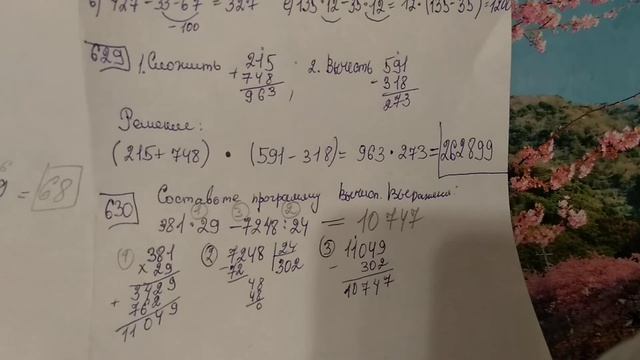 б) 427 - 33 - 67 = 327
-100
135 · 12 - 35 · 12 = 12 · (135 - 35) = 1200
629
1. Сложить 215 + 748 = 963; 2. Вычесть 591 - 318 = 273
Решение:
(215 + 748) · (591 - 318) = 963 · 273 = 262899
= 68
630 Составьте программу вычисл. выражения:
381 · 29 - 7248 : 24 = 10747
① ③ ②
① 381 ② 7248 | 24 ③ 11049
× 29 72 302 - 302
3429 48 10747
+ 762 48
11049 0